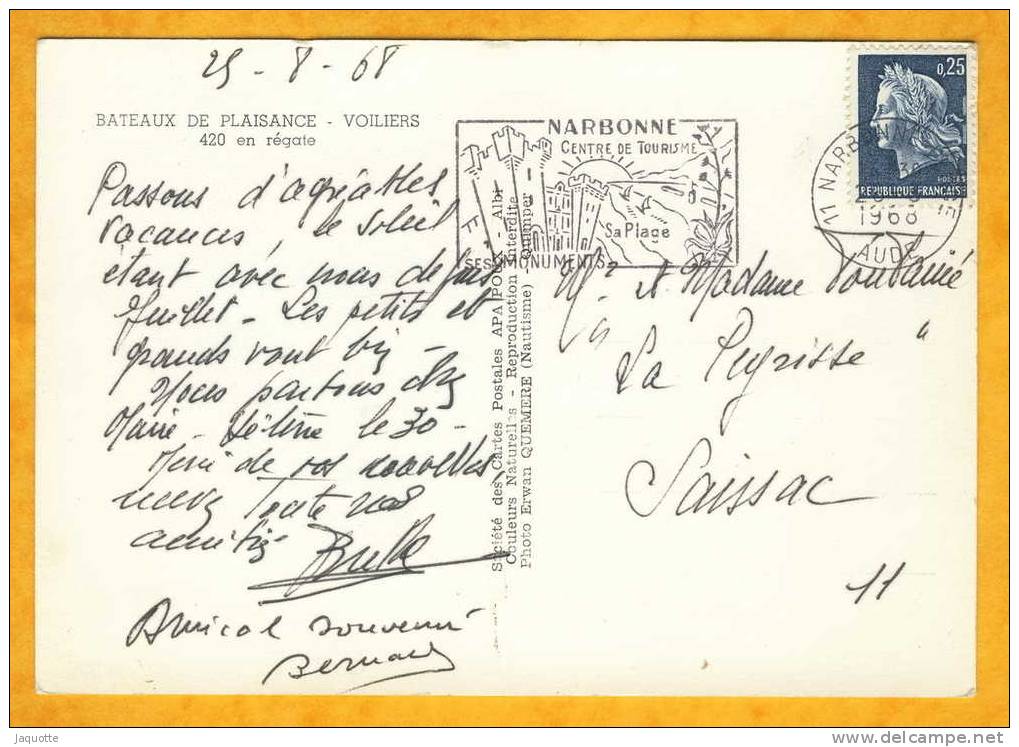 25 - 8 - 68
BATEAUX DE PLAISANCE - VOILIERS
420 en régate
Passons d'agréables
vacances, le soleil
étant avec nous depuis
Juillet - Les petits et
grands vont bien -
Nous partons chez
Marie - Hélène le 30 -
Merci de vos nouvelles,
recevez toute nos
amitiés
Amical souvenir
Bernard
Société des Cartes Postales APA POUX - Albi
Couleurs Naturelles - Reproduction interdite
Photo Erwan QUEMERE (Nautisme) - Quimper
NARBONNE
CENTRE DE TOURISME
Sa Plage
SES MONUMENTS
0,25
REPUBLIQUE FRANÇAISE
11 NARBONNE
1968
AUDE
Mr et Madame
"La Peyrisse"
Saissac
11
Jaquotte
www.delcampe.net